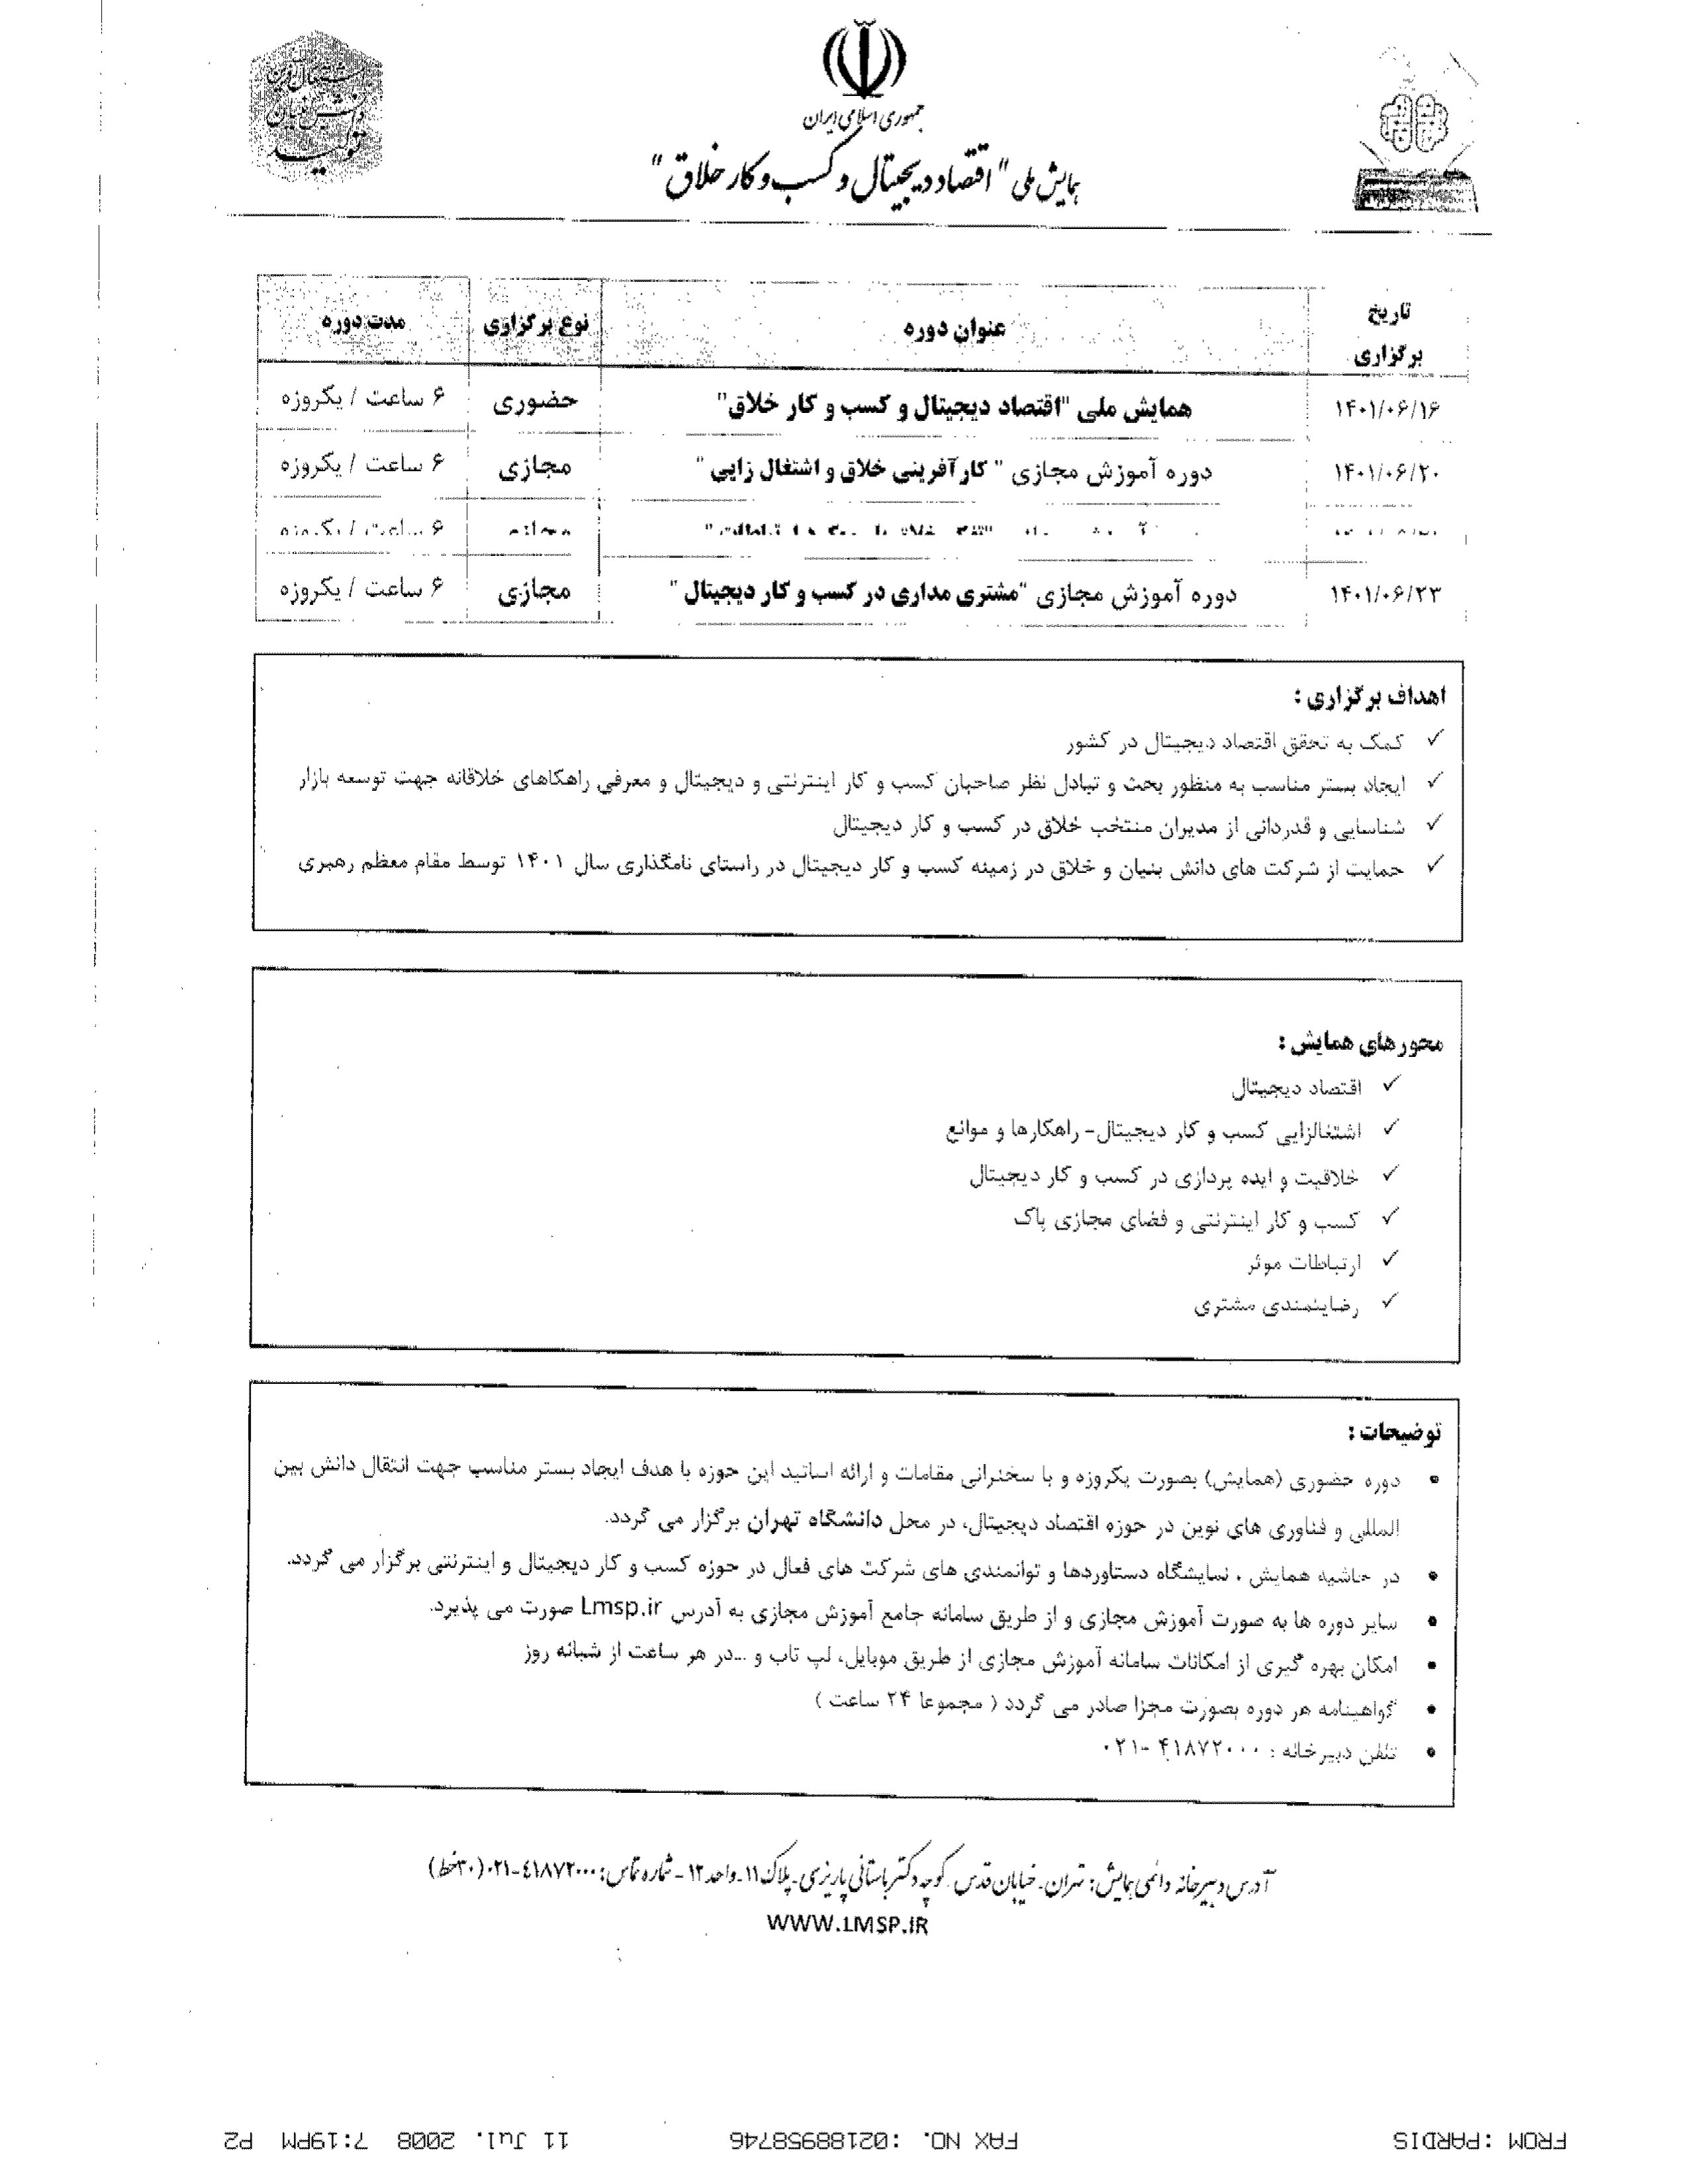 تولید
دانش بنیان
اشتغال آفرین
جمهوری اسلامی ایران
همایش ملی "اقتصاد دیجیتال و کسب و کار خلاق"
تاریخ برگزاری عنوان دوره نوع برگزاری مدت دوره
۱۴۰۱/۰۶/۱۶ همایش ملی "اقتصاد دیجیتال و کسب و کار خلاق" حضوری ۶ ساعت / یکروزه
۱۴۰۱/۰۶/۲۰ دوره آموزش مجازی " کارآفرینی خلاق و اشتغال زایی " مجازی ۶ ساعت / یکروزه
مجازی ۶ ساعت / یکروزه
۱۴۰۱/۰۶/۲۳ دوره آموزش مجازی "مشتری مداری در کسب و کار دیجیتال " مجازی ۶ ساعت / یکروزه
اهداف برگزاری :
✓ کمک به تحقق اقتصاد دیجیتال در کشور
✓ ایجاد بستر مناسب به منظور بحث و تبادل نظر صاحبان کسب و کار اینترنتی و دیجیتال و معرفی راهکاهای خلاقانه جهت توسعه بازار
✓ شناسایی و قدردانی از مدیران منتخب خلاق در کسب و کار دیجیتال
✓ حمایت از شرکت های دانش بنیان و خلاق در زمینه کسب و کار دیجیتال در راستای نامگذاری سال ۱۴۰۱ توسط مقام معظم رهبری
محورهای همایش :
✓ اقتصاد دیجیتال
✓ اشتغالزایی کسب و کار دیجیتال- راهکارها و موانع
✓ خلاقیت و ایده پردازی در کسب و کار دیجیتال
✓ کسب و کار اینترنتی و فضای مجازی پاک
✓ ارتباطات موثر
✓ رضایتمندی مشتری
توضیحات :
• دوره حضوری (همایش) بصورت یکروزه و با سخنرانی مقامات و ارائه اساتید این حوزه با هدف ایجاد بستر مناسب جهت انتقال دانش بین
المللی و فناوری های نوین در حوزه اقتصاد دیجیتال، در محل دانشگاه تهران برگزار می گردد.
• در حاشیه همایش ، نمایشگاه دستاوردها و توانمندی های شرکت های فعال در حوزه کسب و کار دیجیتال و اینترنتی برگزار می گردد.
• سایر دوره ها به صورت آموزش مجازی و از طریق سامانه جامع آموزش مجازی به آدرس Lmsp.ir صورت می پذیرد.
• امکان بهره گیری از امکانات سامانه آموزش مجازی از طریق موبایل، لپ تاپ و ...در هر ساعت از شبانه روز
• گواهینامه هر دوره بصورت مجزا صادر می گردد ( مجموعا ۲۴ ساعت )
• تلفن دبیرخانه : ۴۱۸۷۲۰۰۰ -۰۲۱
آدرس دبیرخانه دائمی همایش: تهران- خیابان قدس- کوچه دکتر باستانی پاریزی- پلاک ۱۱- واحد ۱۲ - شماره تماس: ۴۱۸۷۲۰۰۰-۰۲۱ (۳۰خط)
WWW.LMSP.IR
FROM :PARDIS FAX NO. :02188958746 11 Jul. 2008 7:19PM P2